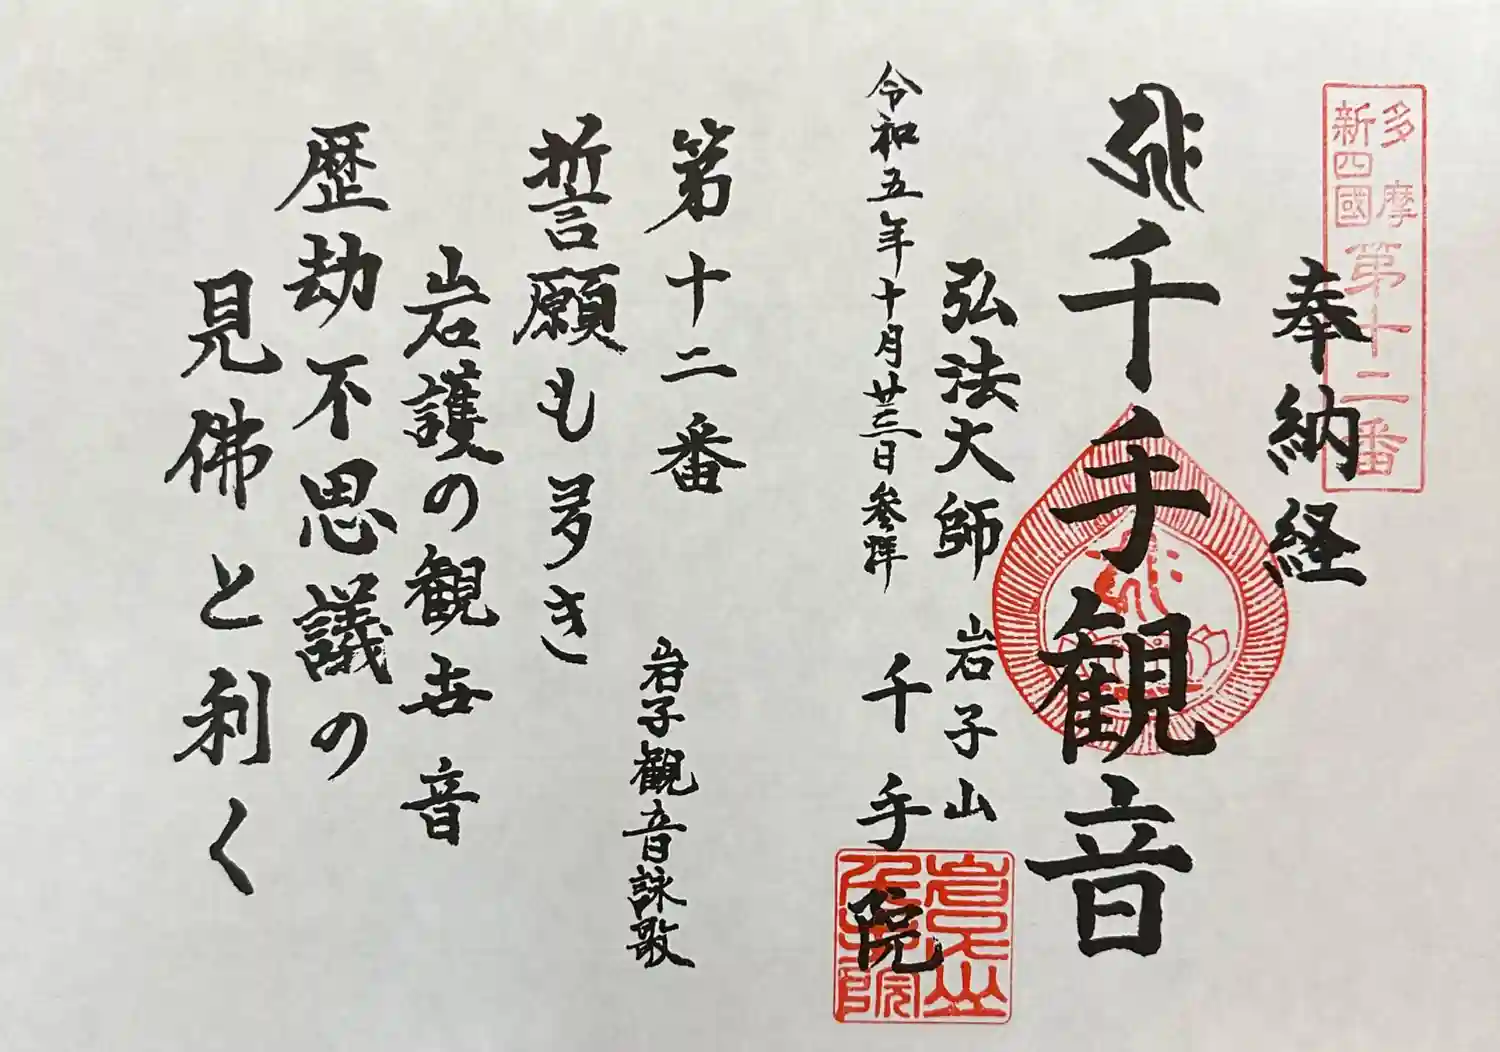 多摩
新四國
第十二番
奉納経
千手観音
弘法大師
岩子山
千手院
令和五年十月廿三日参拝
第十二番
岩子観音詠歌
誓願も多き
岩護の観世音
歴劫不思議の
見佛と利く
岩子山
千手院